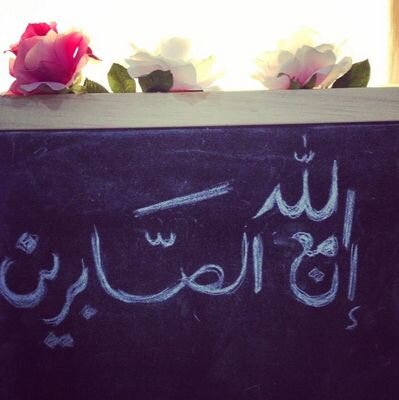 إن الله مع الصّابرين